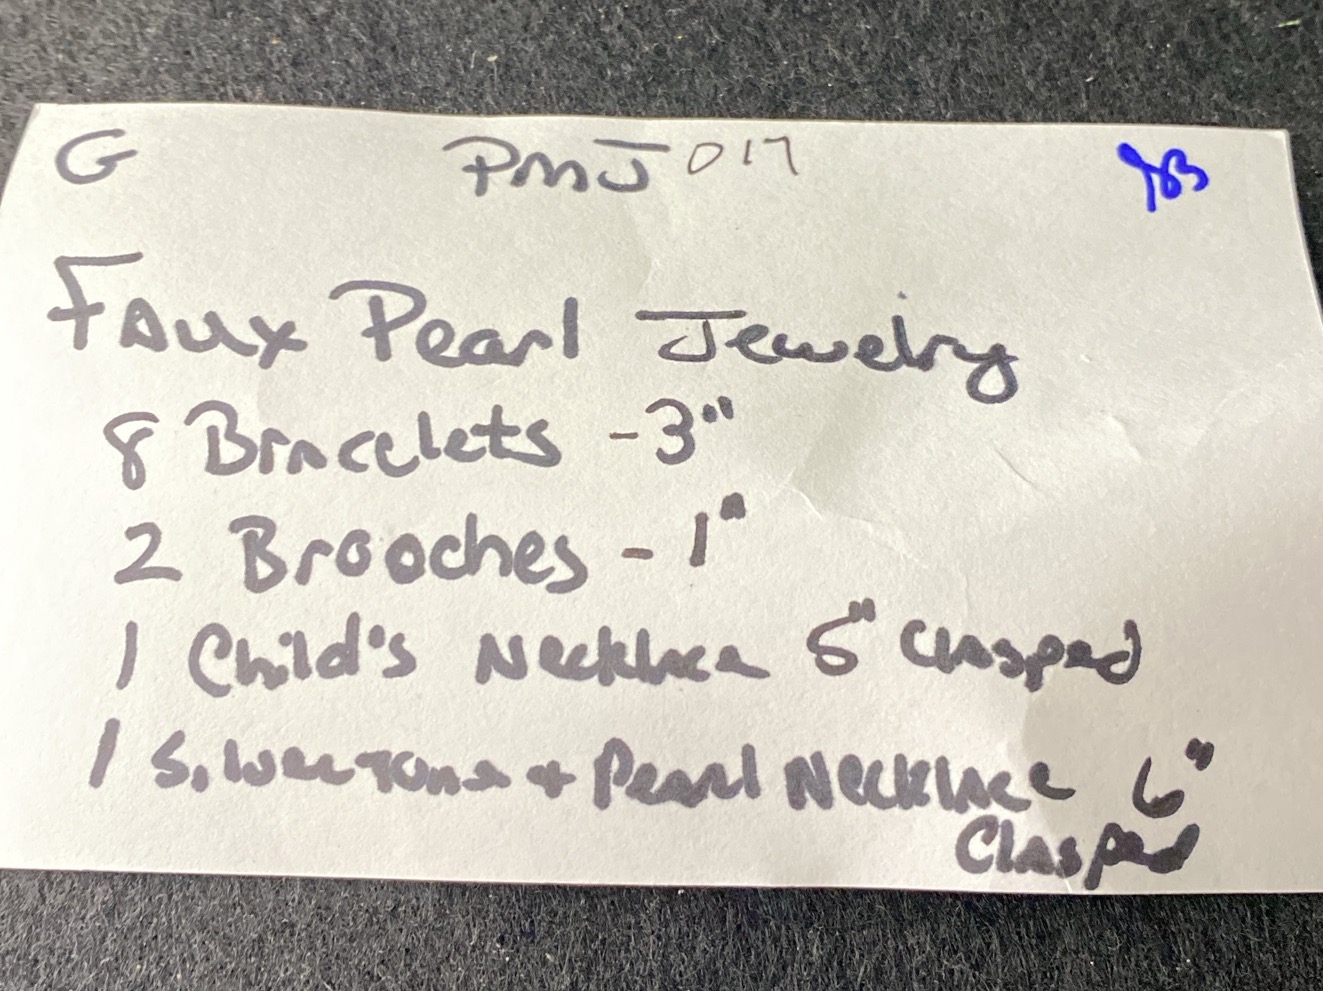 G PMJ 017
Faux Pearl Jewelry
8 Bracelets - 3"
2 Brooches - 1"
1 Child's Necklace 5" Clasped
1 Silvertone + Pearl Necklace 6"
Clasped